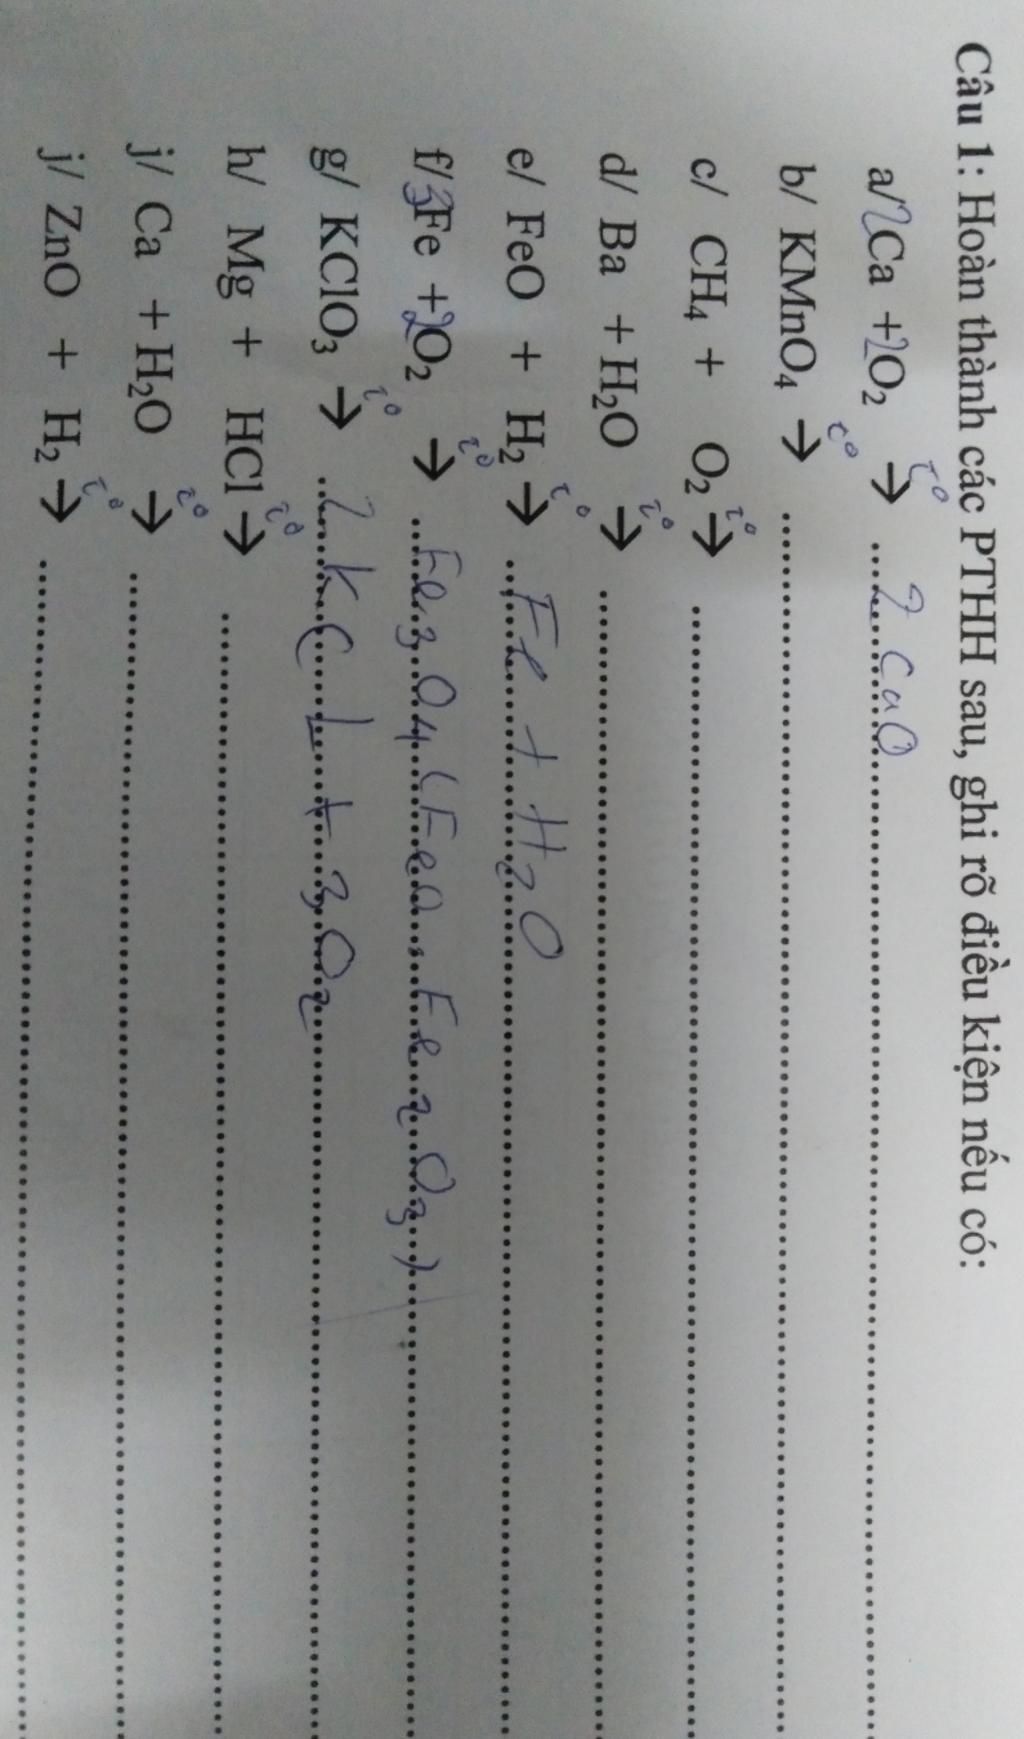 Câu 1: Hoàn thành các PTHH sau, ghi rõ điều kiện nếu có:
a/ 2Ca + 2O₂ t° → 2 CaO
b/ KMnO₄ t° →
c/ CH₄ + O₂ t° →
d/ Ba + H₂O t° →
e/ FeO + H₂ t° → Fe + H₂O
f/ 3Fe + 2O₂ t° → Fe₃O₄ (FeO.Fe₂O₃)
g/ KClO₃ t° → 2KCl + 3O₂
h/ Mg + HCl t° →
j/ Ca + H₂O t° →
j/ ZnO + H₂ t° →